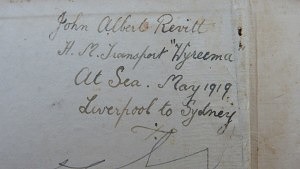 John Albert Revitt
H. M. Transport "Wyreema
At Sea. May 1919.
Liverpool to Sydney